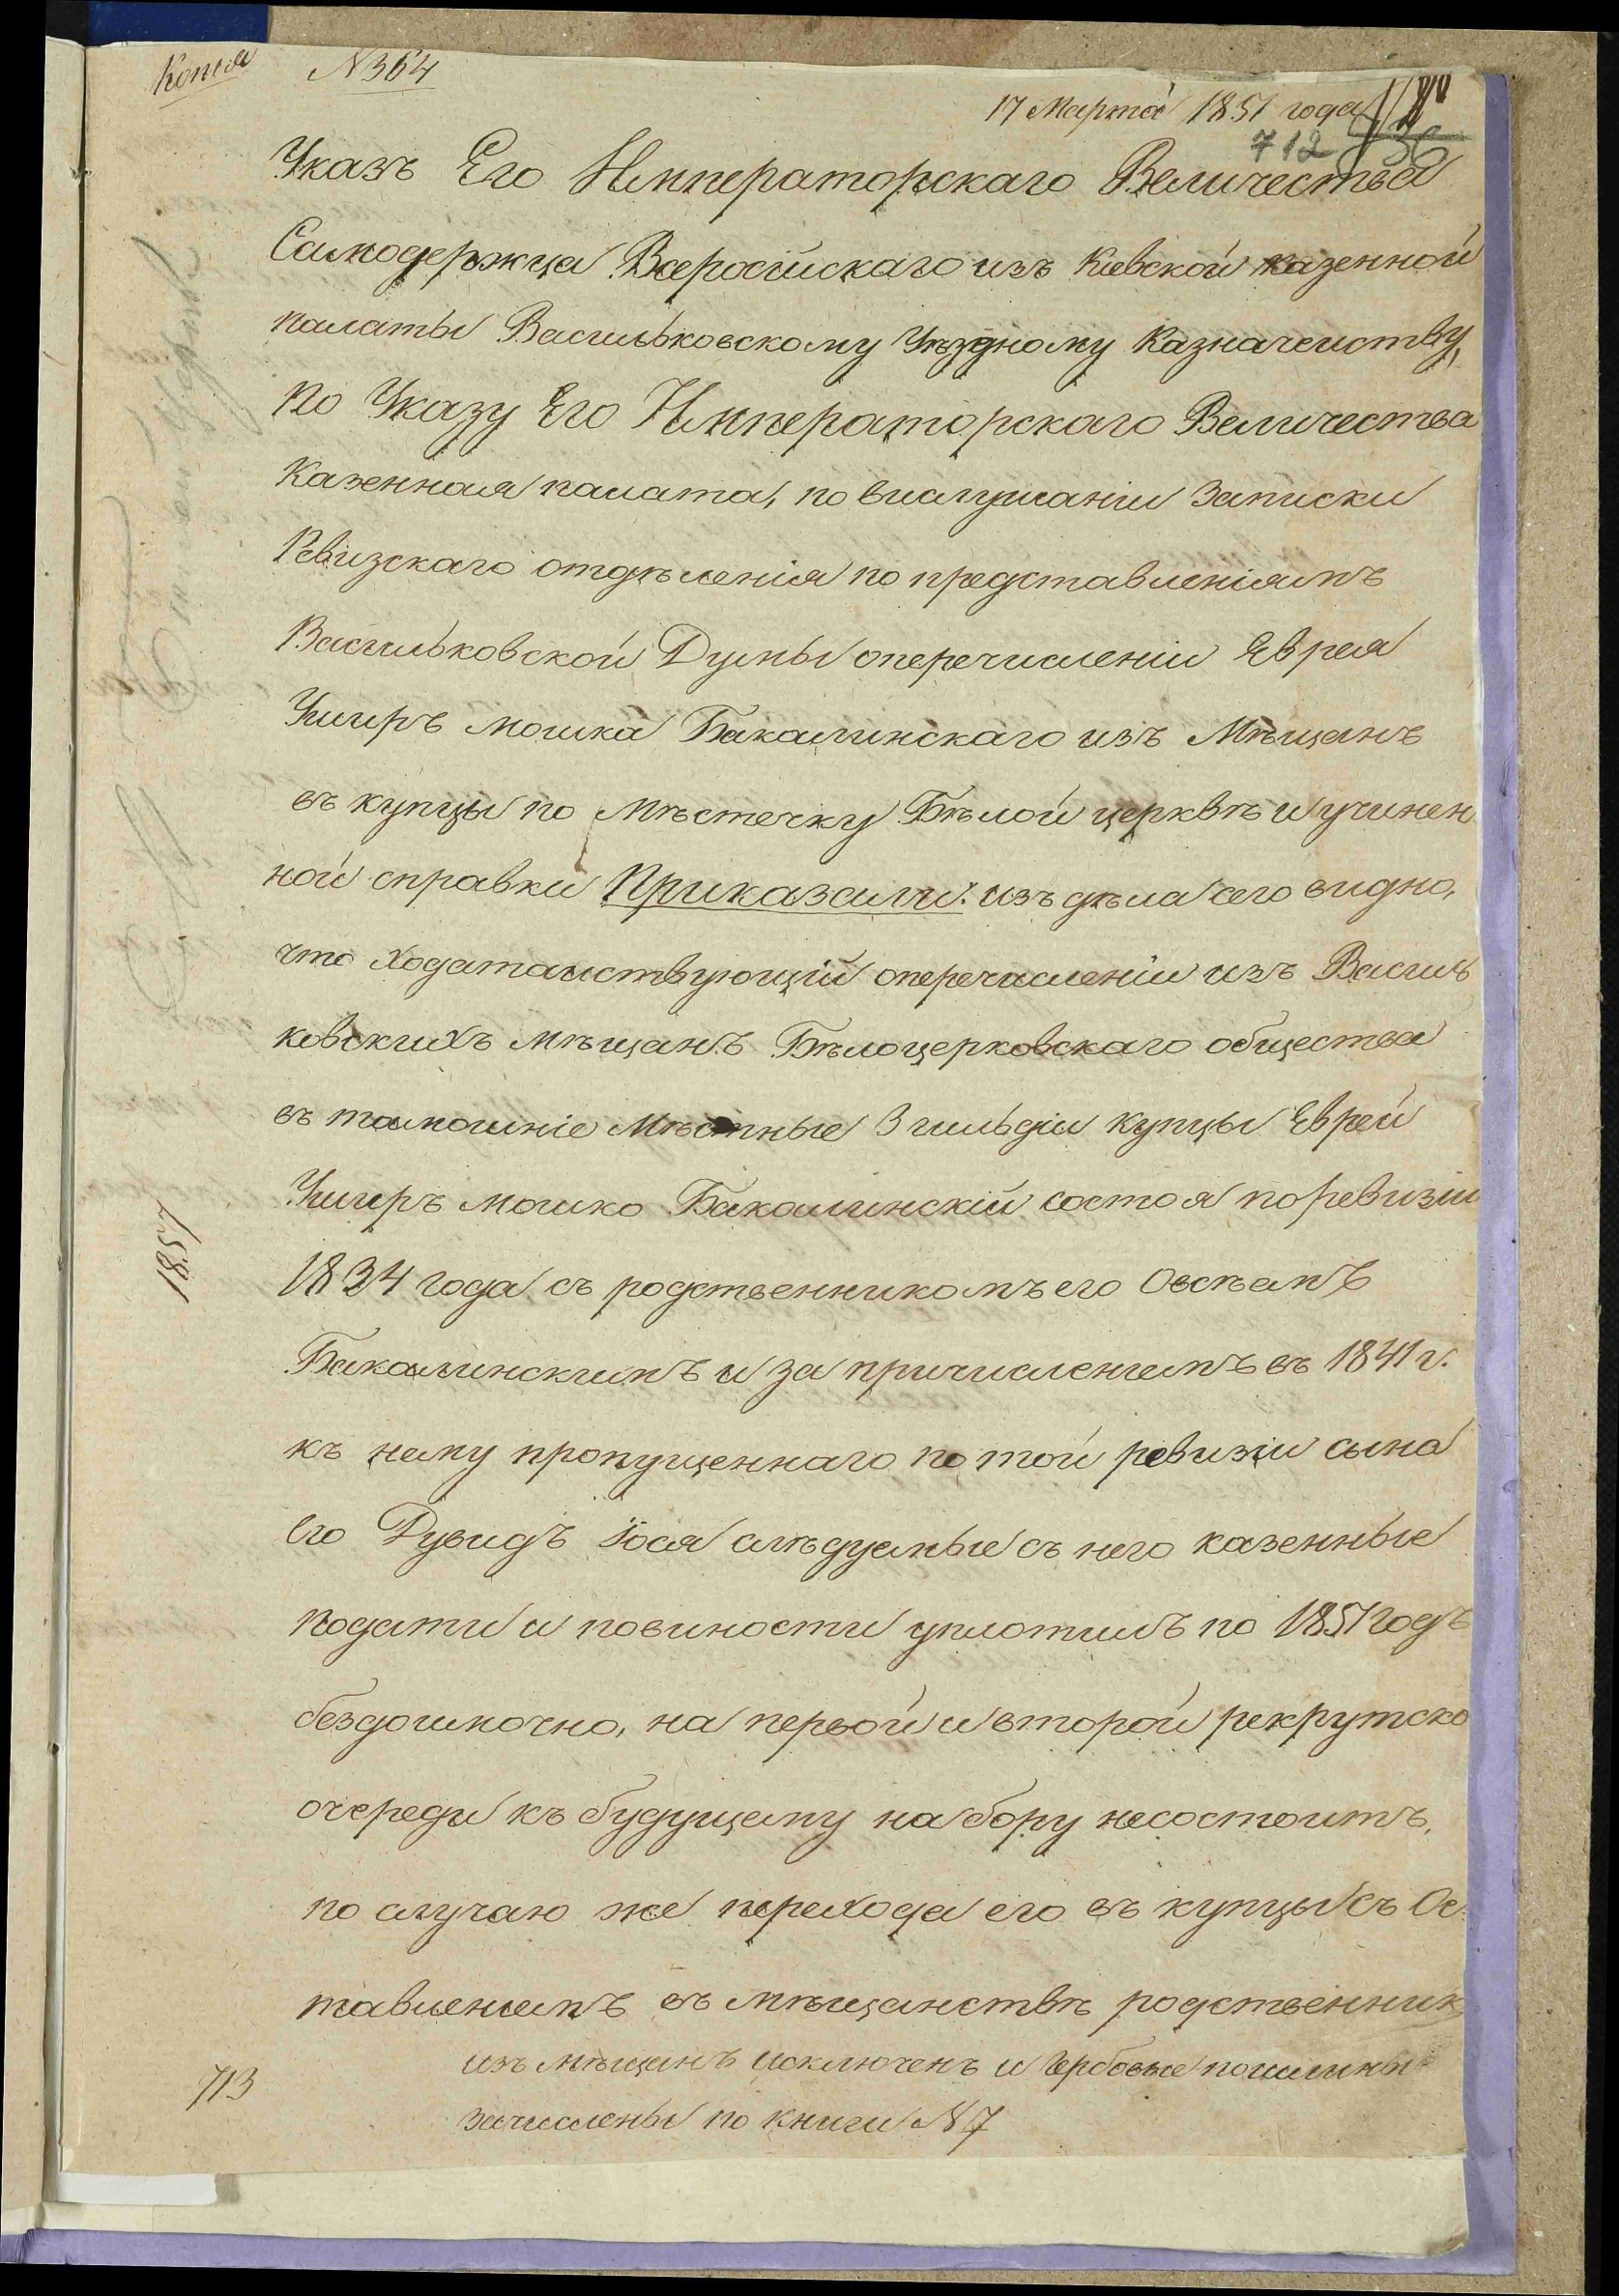 Копія №364
17 Марта 1851 года
712
Указъ Его Императорскаго Величества
Самодержца Всеросійскаго изъ Кіевской казенной
палаты Васильковскому Уѣздному Казначейству,
По Указу Его Императорскаго Величества
Казенная палата, по выслушаніи Записки
Ревизскаго отдѣленія по представленіямъ
Васильковской Думы о перечисленіи Еврея
Ушеръ Мошка Бакалинскаго изъ Мѣщанъ
въ купцы по Мѣстечку Бѣлой церквѣ и учинен
ной справки Приказали: изъ дѣла сего видно,
что ходатайствующій о перечисленіи изъ Василь
ковскихъ мѣщанъ Бѣлоцерковскаго общества
въ тамошніе Мѣстные 3 гильдіи купцы Еврей
Ушеръ Мошко Бакалинскій состоя по ревизіи
1834 года съ родственникомъ его Овсѣемъ
Бакалинскимъ и за причисленіемъ въ 1841 г.
къ нему пропущеннаго по той ревизіи сына
его Дувидъ Іося слѣдуемые съ него казенные
подати и повиности уплотилъ по 1851 годъ
бездоимочно, на первой и второй рекрутско
очереди къ будущему набору не состоитъ,
по случаю же перехода его въ купцы съ Ос
тавленіемъ въ мѣщанствѣ родственник
изъ мѣщанъ исключенъ и Гербовые пошлины
зачислены по книги №7
1851
713